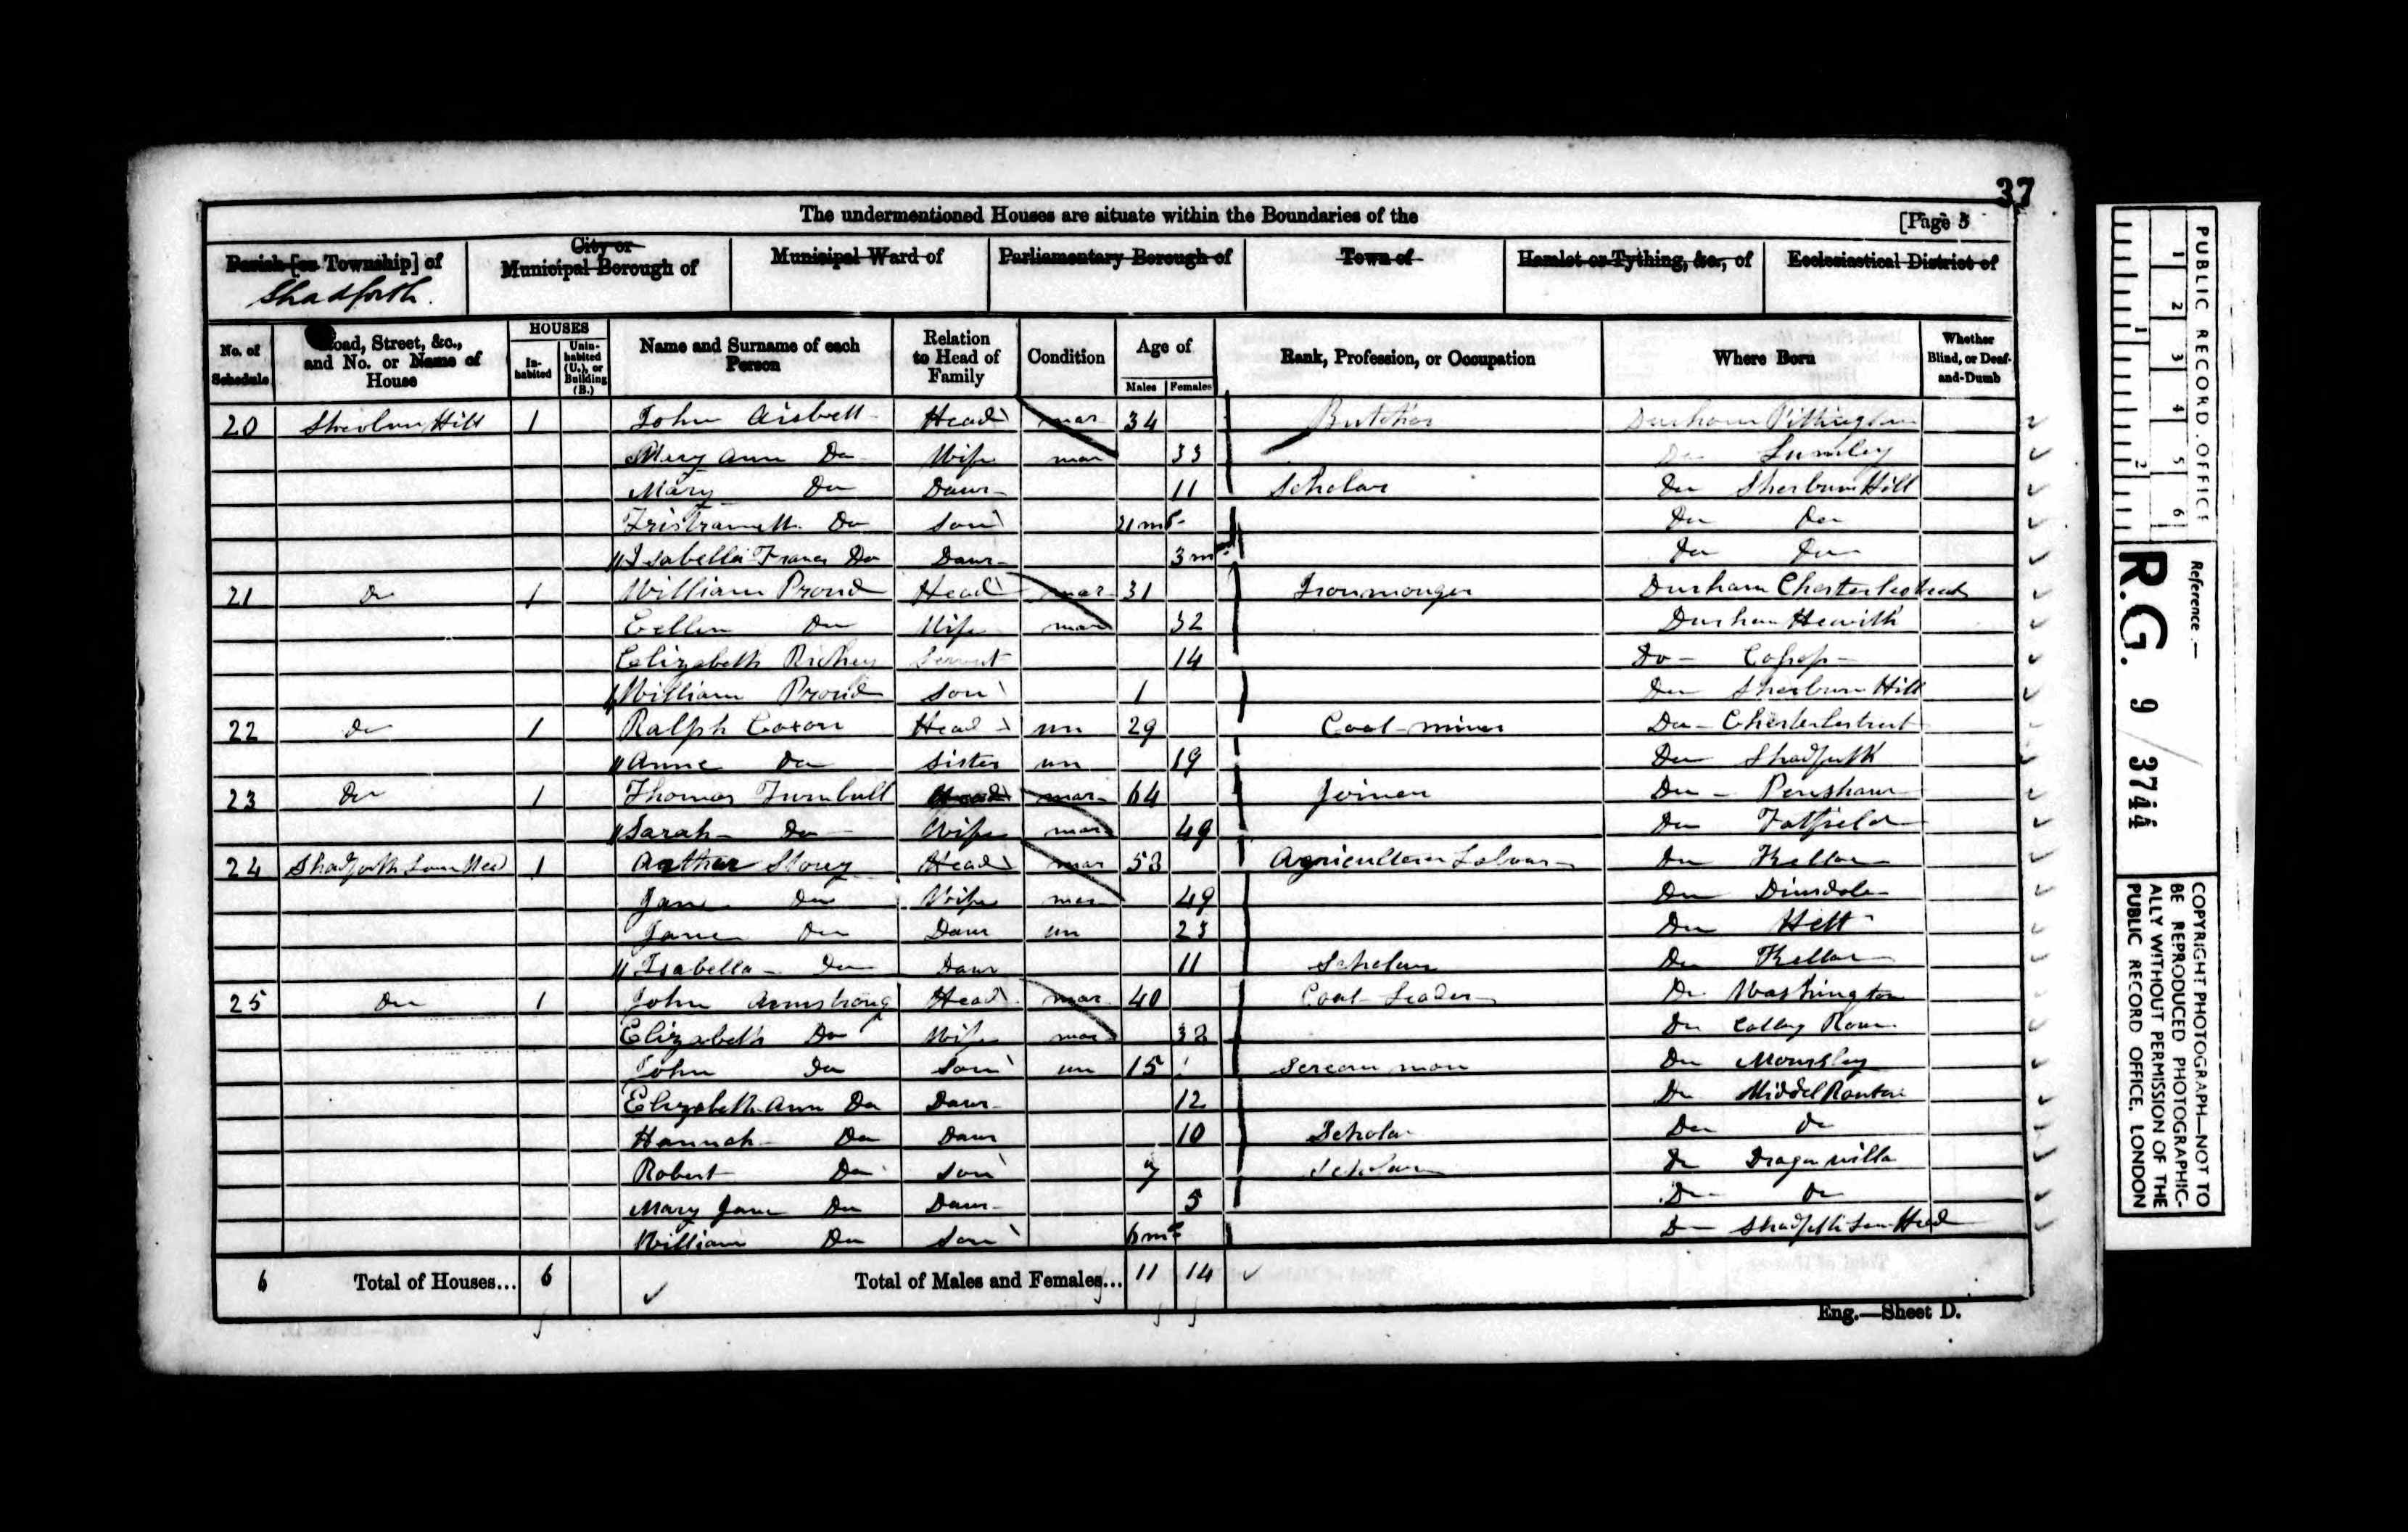 37
The undermentioned Houses are situate within the Boundaries of the
[Page 5
Parish [or Township] of
Shadforth.
City or Municipal Borough of
Municipal Ward of
Parliamentary Borough of
Town of
Hamlet or Tything, &c., of
Ecclesiastical District of
No. of Schedule
Road, Street, &c., and No. or Name of House
HOUSES
In-habited
Unin-habited (U.), or Building (B.)
Name and Surname of each Person
Relation to Head of Family
Condition
Age of
Males
Females
Rank, Profession, or Occupation
Where Born
Whether Blind, or Deaf-and-Dumb
20 Sherburn Hill 1 John Head mar 34 Butcher Durham Pittington
Mary Ann Do Wife mar 33 Do Lumley
Mary Do Daur 11 Scholar Do Sherburn Hill
Do Son Do Do
Isabella Do Daur 3 ms Do Do
21 Do 1 William Proud Head mar 31 Ironmonger Durham
Do Wife mar 32 Durham
Elizabeth Servant 14 Do
William Proud Son 1 Do Sherburn Hill
22 Do 1 Ralph Coxon Head un 29 Coal miner Do
Anne Do Sister un 19 Do Shadforth
23 Do 1 Thomas Turnbull Head mar 64 Joiner Do Penshaw
Sarah Do Wife mar 49 Do Fatfield
24 1 Arthur Story Head mar 53 Do Kelloe
Jane Do Wife mar 49 Do Dinsdale
Jane Do Daur un 23 Do Hett
Isabella Do Daur 11 Scholar Do Kelloe
25 Do 1 John Armstrong Head mar 40 Coal Do Washington
Elizabeth Do Wife mar Do
John Do Son un 15 Do
Elizabeth Ann Do Daur 12 Do
Hannah Do Daur 10 Scholar Do Do
Robert Do Son 7 Scholar Do
Mary Jane Do Daur 5 Do Do
William Do Son 6 ms Do
6 Total of Houses... 6 Total of Males and Females... 11 14
Eng.—Sheet D.
PUBLIC RECORD OFFICE
1 2 3 4 5 6
1 2
Reference:—
R.G. 9 / 3744
COPYRIGHT PHOTOGRAPH—NOT TO
BE REPRODUCED PHOTOGRAPHIC-
ALLY WITHOUT PERMISSION OF THE
PUBLIC RECORD OFFICE, LONDON